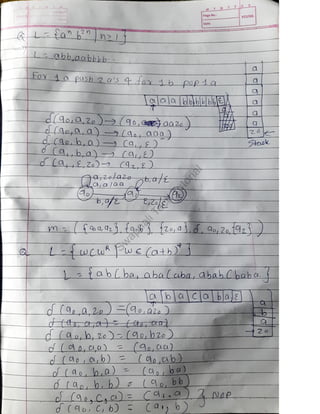 Q L = {aⁿ b²ⁿ | n ≥ 1}
L = abb, aabbbb
For 1 a push 2 a's & for 1 b pop 1 a
a a a b b b b b b ε
δ(q0, a, z0) → (q0, aaz0)
δ(q0, a, a) → (q0, aaa)
δ(q0, b, a) → (q1, ε)
δ(q1, b, a) → (q1, ε)
δ(q1, ε, z0) → (q2, ε)
a
a
a
a
a
a
z0
Stack
a, z0/aaz0
a, a/aaa
b, a/ε
q0 q1 q2
b, a/ε ε, z0/ε
Q L = {wcwᴿ | w ∈ (a+b)*}
L = {abcba, abacaba, ababcbaba}
a b a c a b a ε
a
b
a
z0
δ(q0, a, z0) = (q0, az0)
δ(q0, a, a) = (q0, aa)
δ(q0, b, z0) = (q0, bz0)
δ(q0, a, a) = (q0, aa)
δ(q0, a, b) = (q0, ab)
δ(q0, b, a) = (q0, ba)
δ(q0, b, b) = (q0, bb)
δ(q0, c, a) = (q1, a)
δ(q0, c, b) = (q1, b)
} NOP